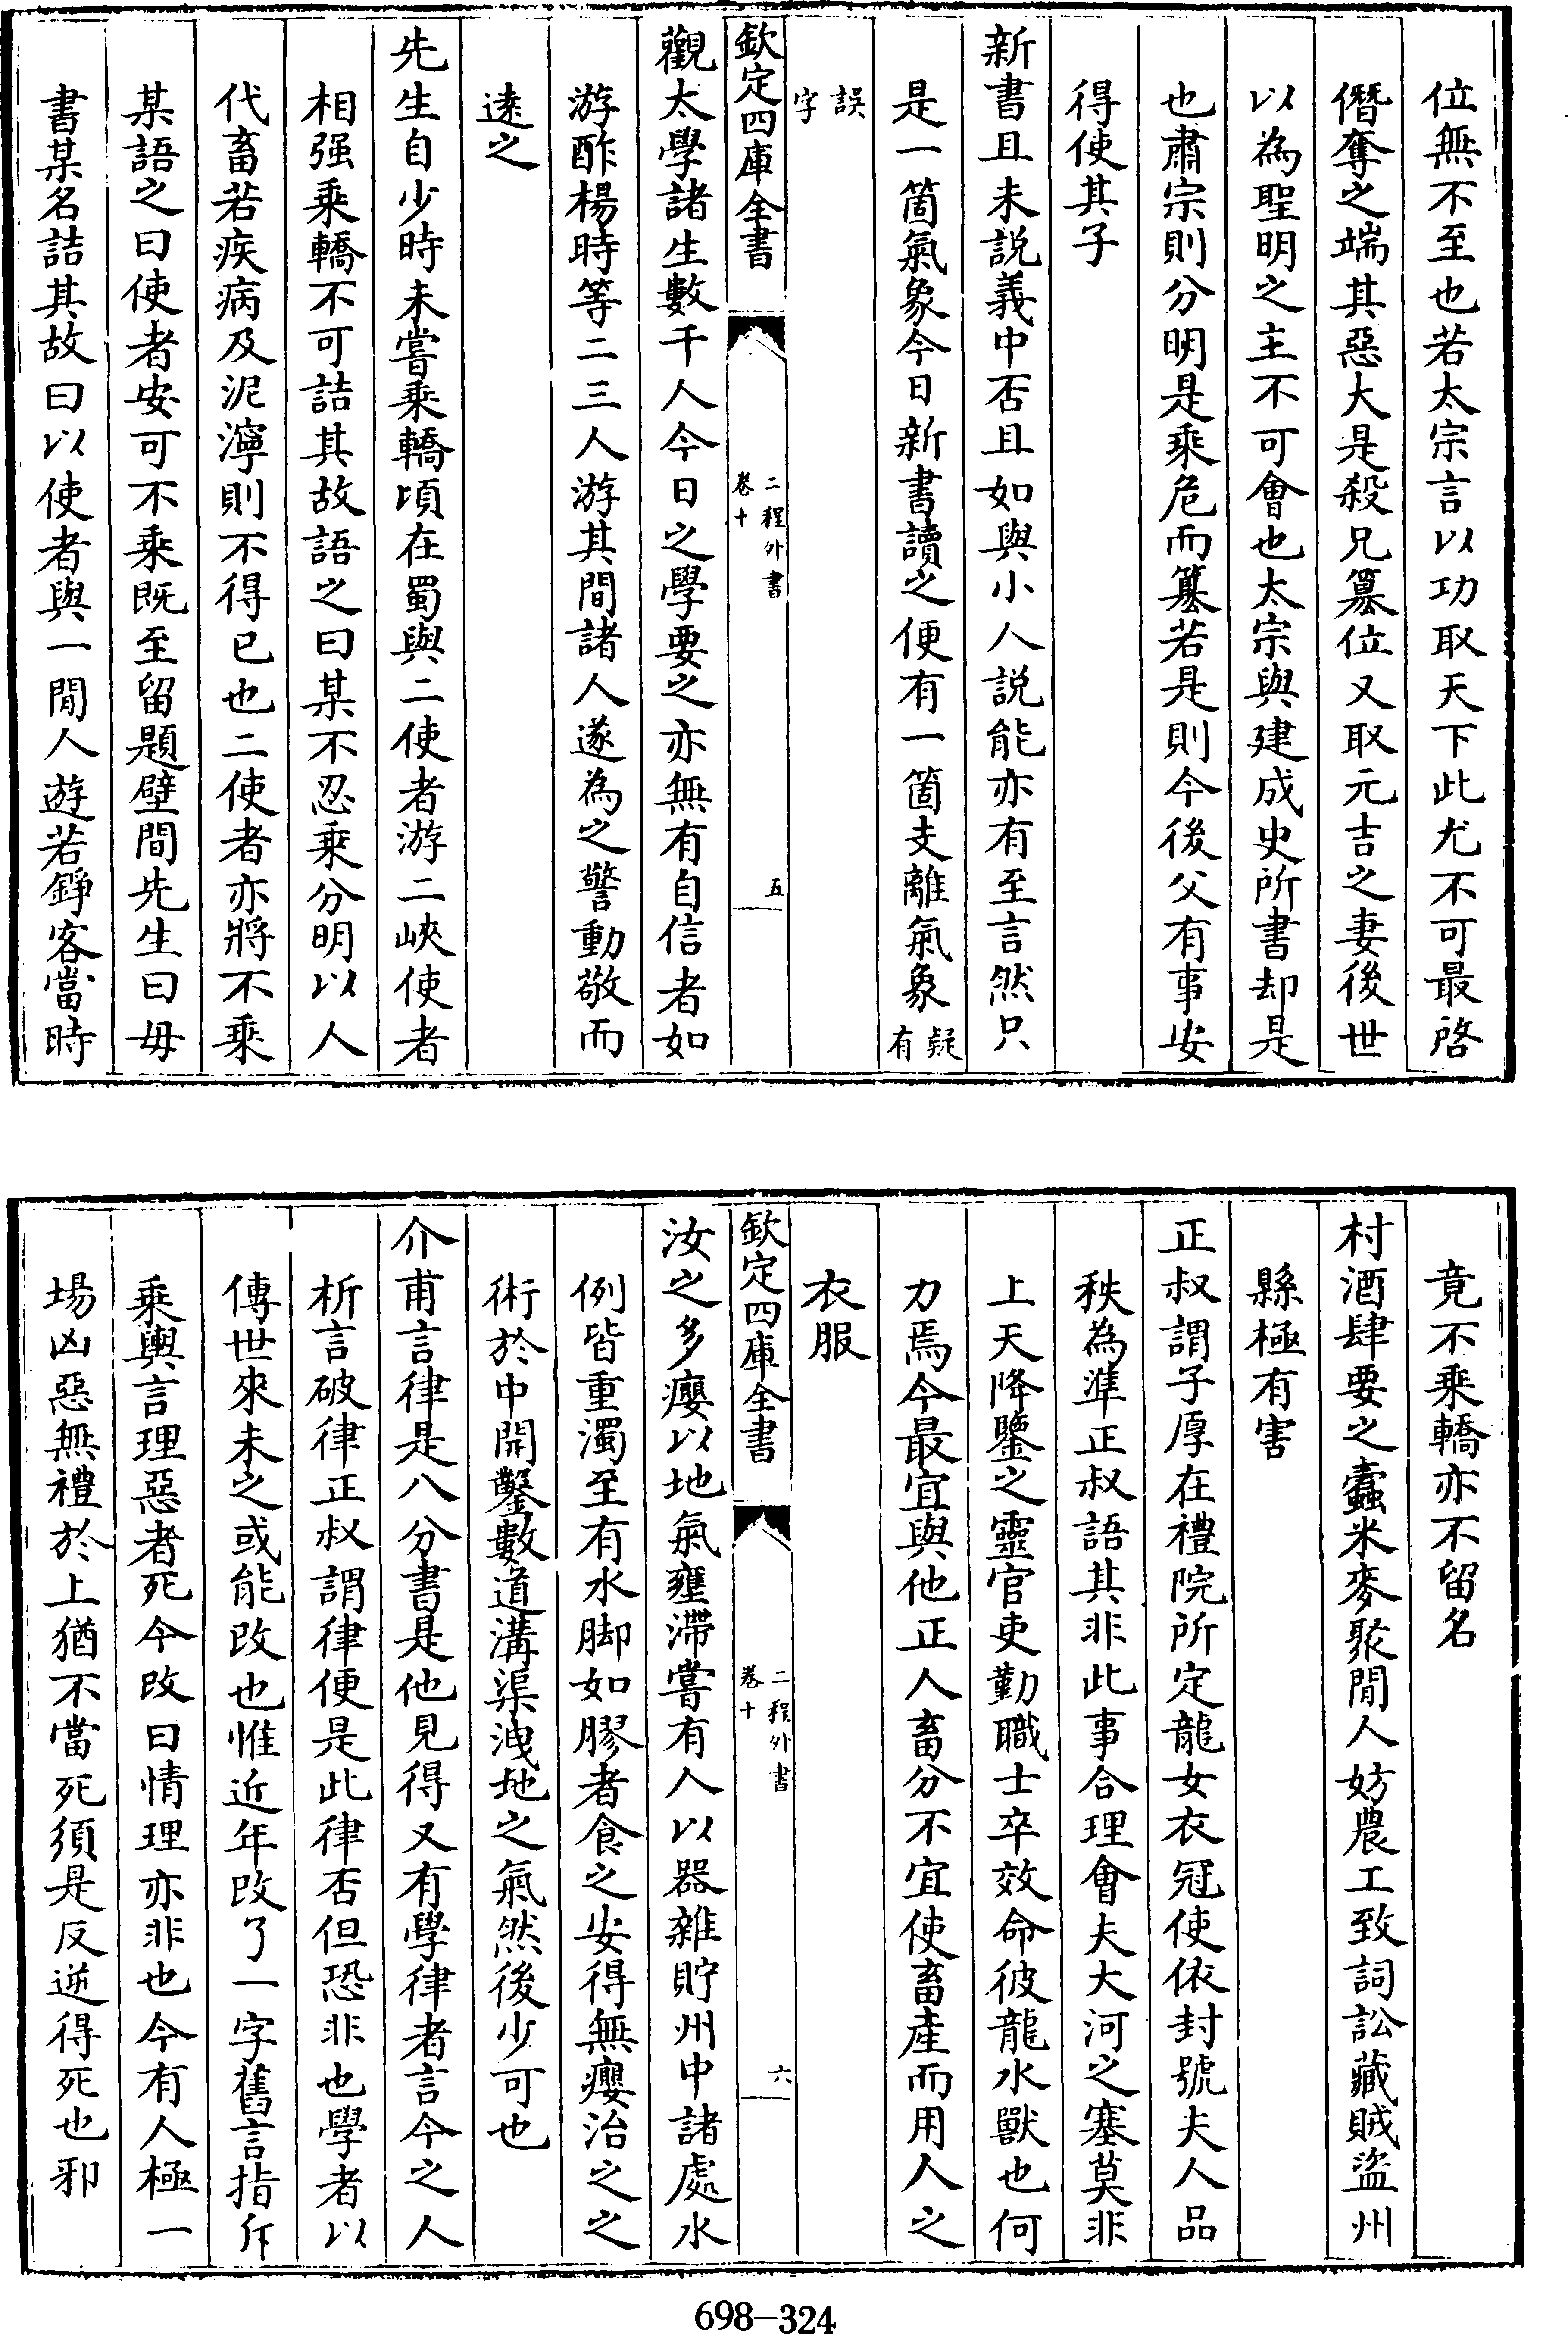 位無不至也若太宗言以功取天下此尤不可最啓
僭奪之端其惡大是殺兄簒位又取元吉之妻後世
以為聖明之主不可會也太宗與建成史所書却是
也肅宗則分明是乘危而簒若是則今後父有事安
得使其子
新書且未説義中否且如與小人説能亦有至言然只
是一箇氣象今日新書讀之便有一箇支離氣象疑有
誤字
欽定四庫全書
二程外書
卷十
五
觀太學諸生數千人今日之學要之亦無有自信者如
游酢楊時等二三人游其間諸人遂為之警動敬而
遠之
先生自少時未嘗乘轎頃在蜀與二使者游二峽使者
相强乘轎不可詰其故語之曰某不忍乘分明以人
代畜若疾病及泥濘則不得已也二使者亦將不乘
某語之曰使者安可不乘既至留題壁間先生曰毋
書某名詰其故曰以使者與一閒人遊若錚客當時
竟不乘轎亦不留名
村酒肆要之蠹米麥聚閒人妨農工致詞訟藏賊盜州
縣極有害
正叔謂子厚在禮院所定龍女衣冠使依封號夫人品
秩為準正叔語其非此事合理會夫大河之塞莫非
上天降鑒之靈官吏勤職士卒效命彼龍水獸也何
力焉今最宜與他正人畜分不宜使畜產而用人之
衣服
欽定四庫全書
二程外書
卷十
六
汝之多癭以地氣壅滯嘗有人以器雜貯州中諸處水
例皆重濁至有水脚如膠者食之安得無癭治之之
術於中開鑿數道溝渠洩地之氣然後少可也
介甫言律是八分書是他見得又有學律者言今之人
析言破律正叔謂律便是此律否但恐非也學者以
傳世來未之或能改也惟近年改了一字舊言指斥
乘輿言理惡者死今改曰情理亦非也今有人極一
場凶惡無禮於上猶不當死須是反逆得死也邪
698-324